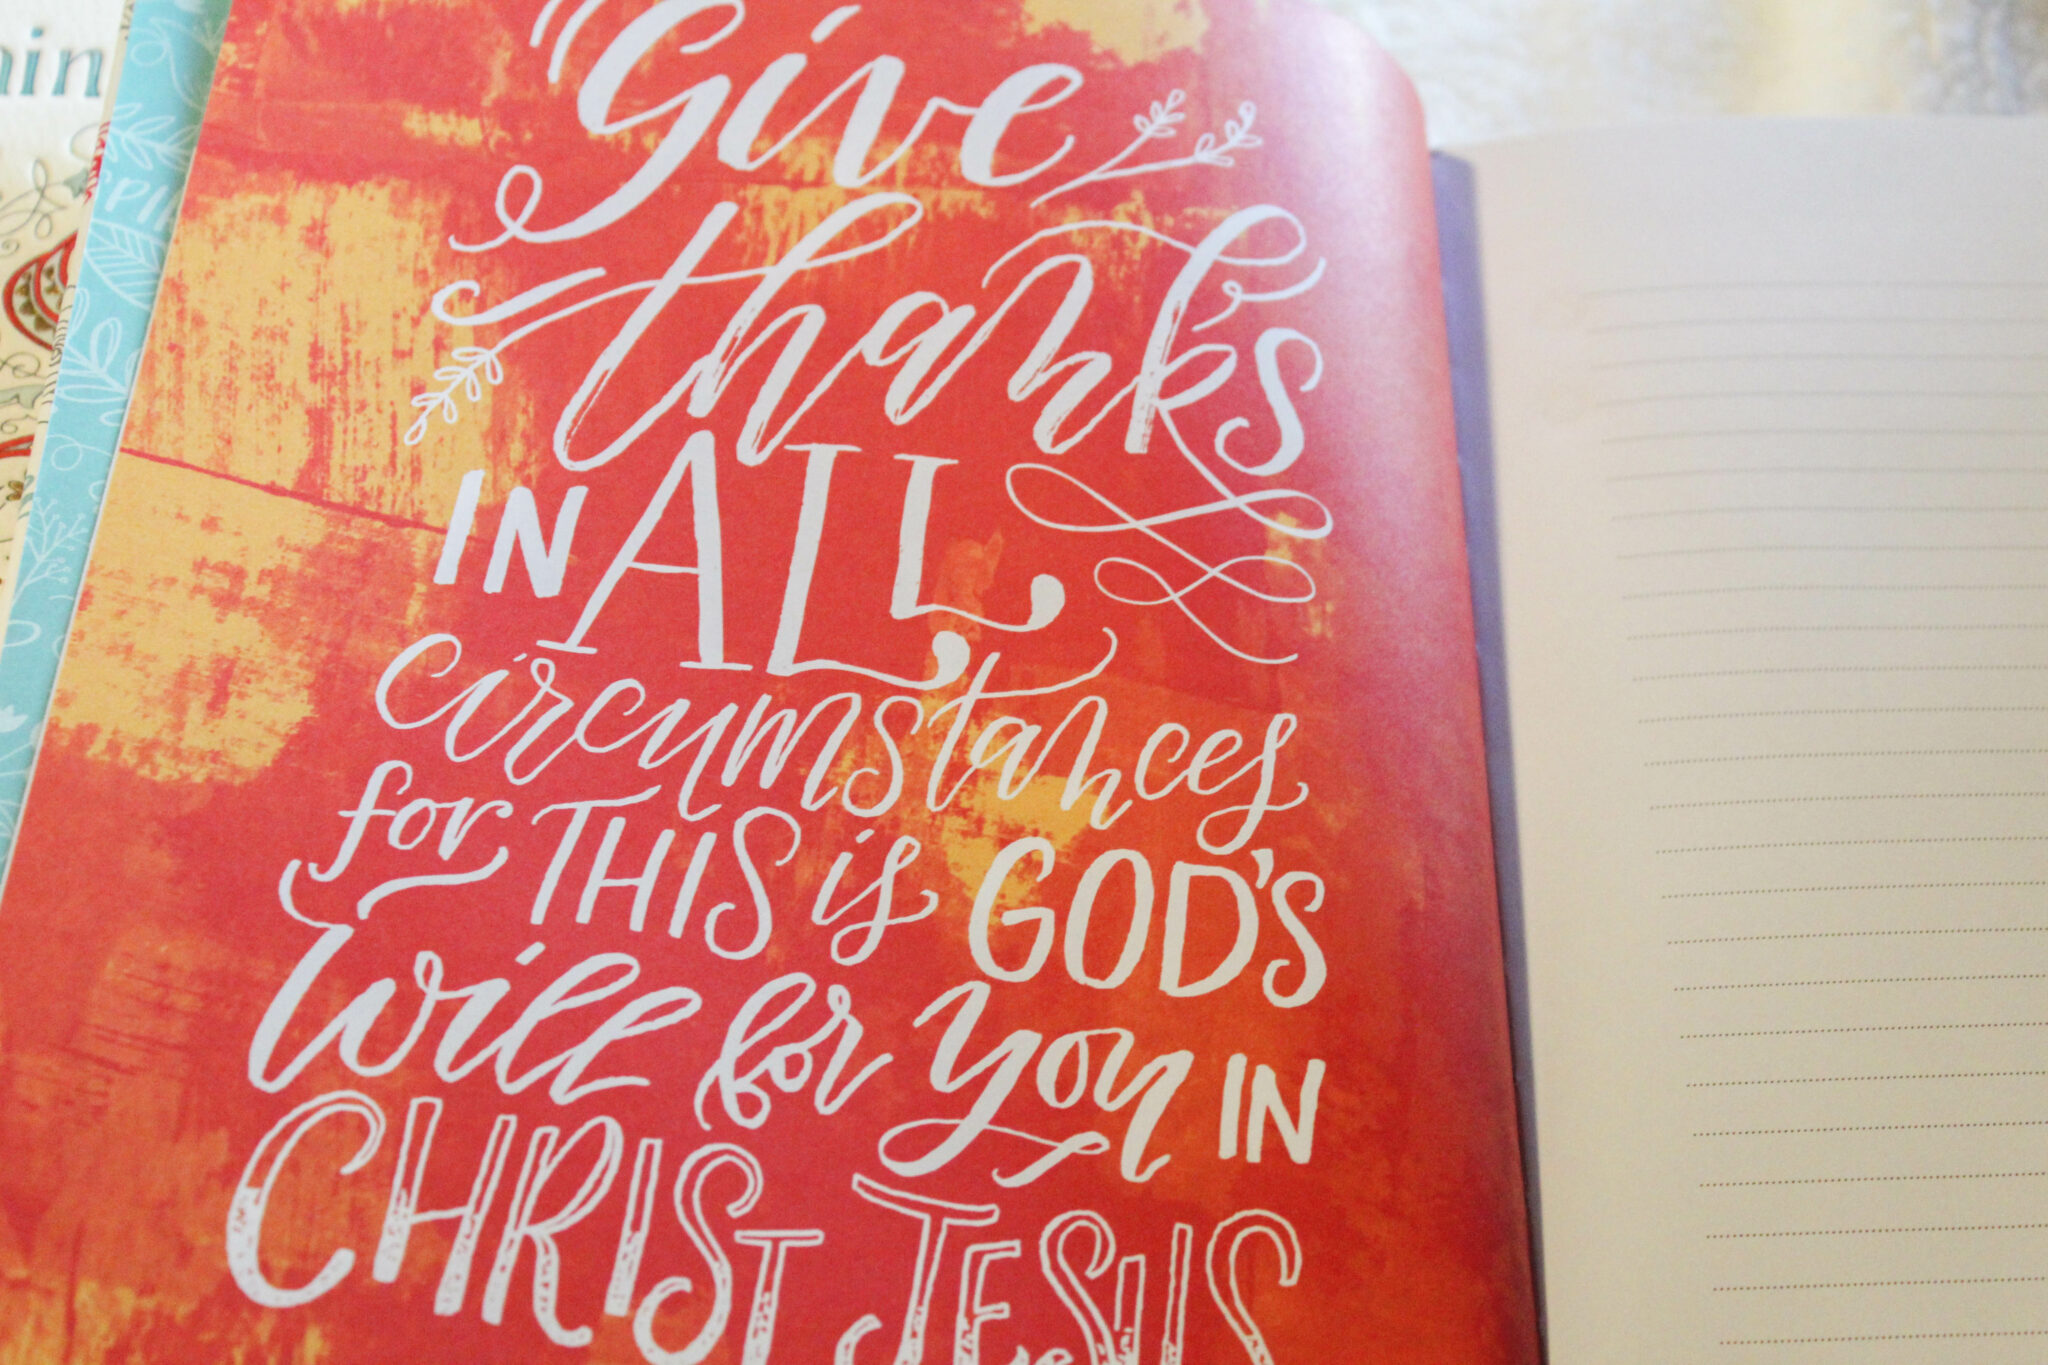 Give
thanks
IN ALL
circumstances
for THIS is GOD'S
will for you IN
CHRIST JESUS